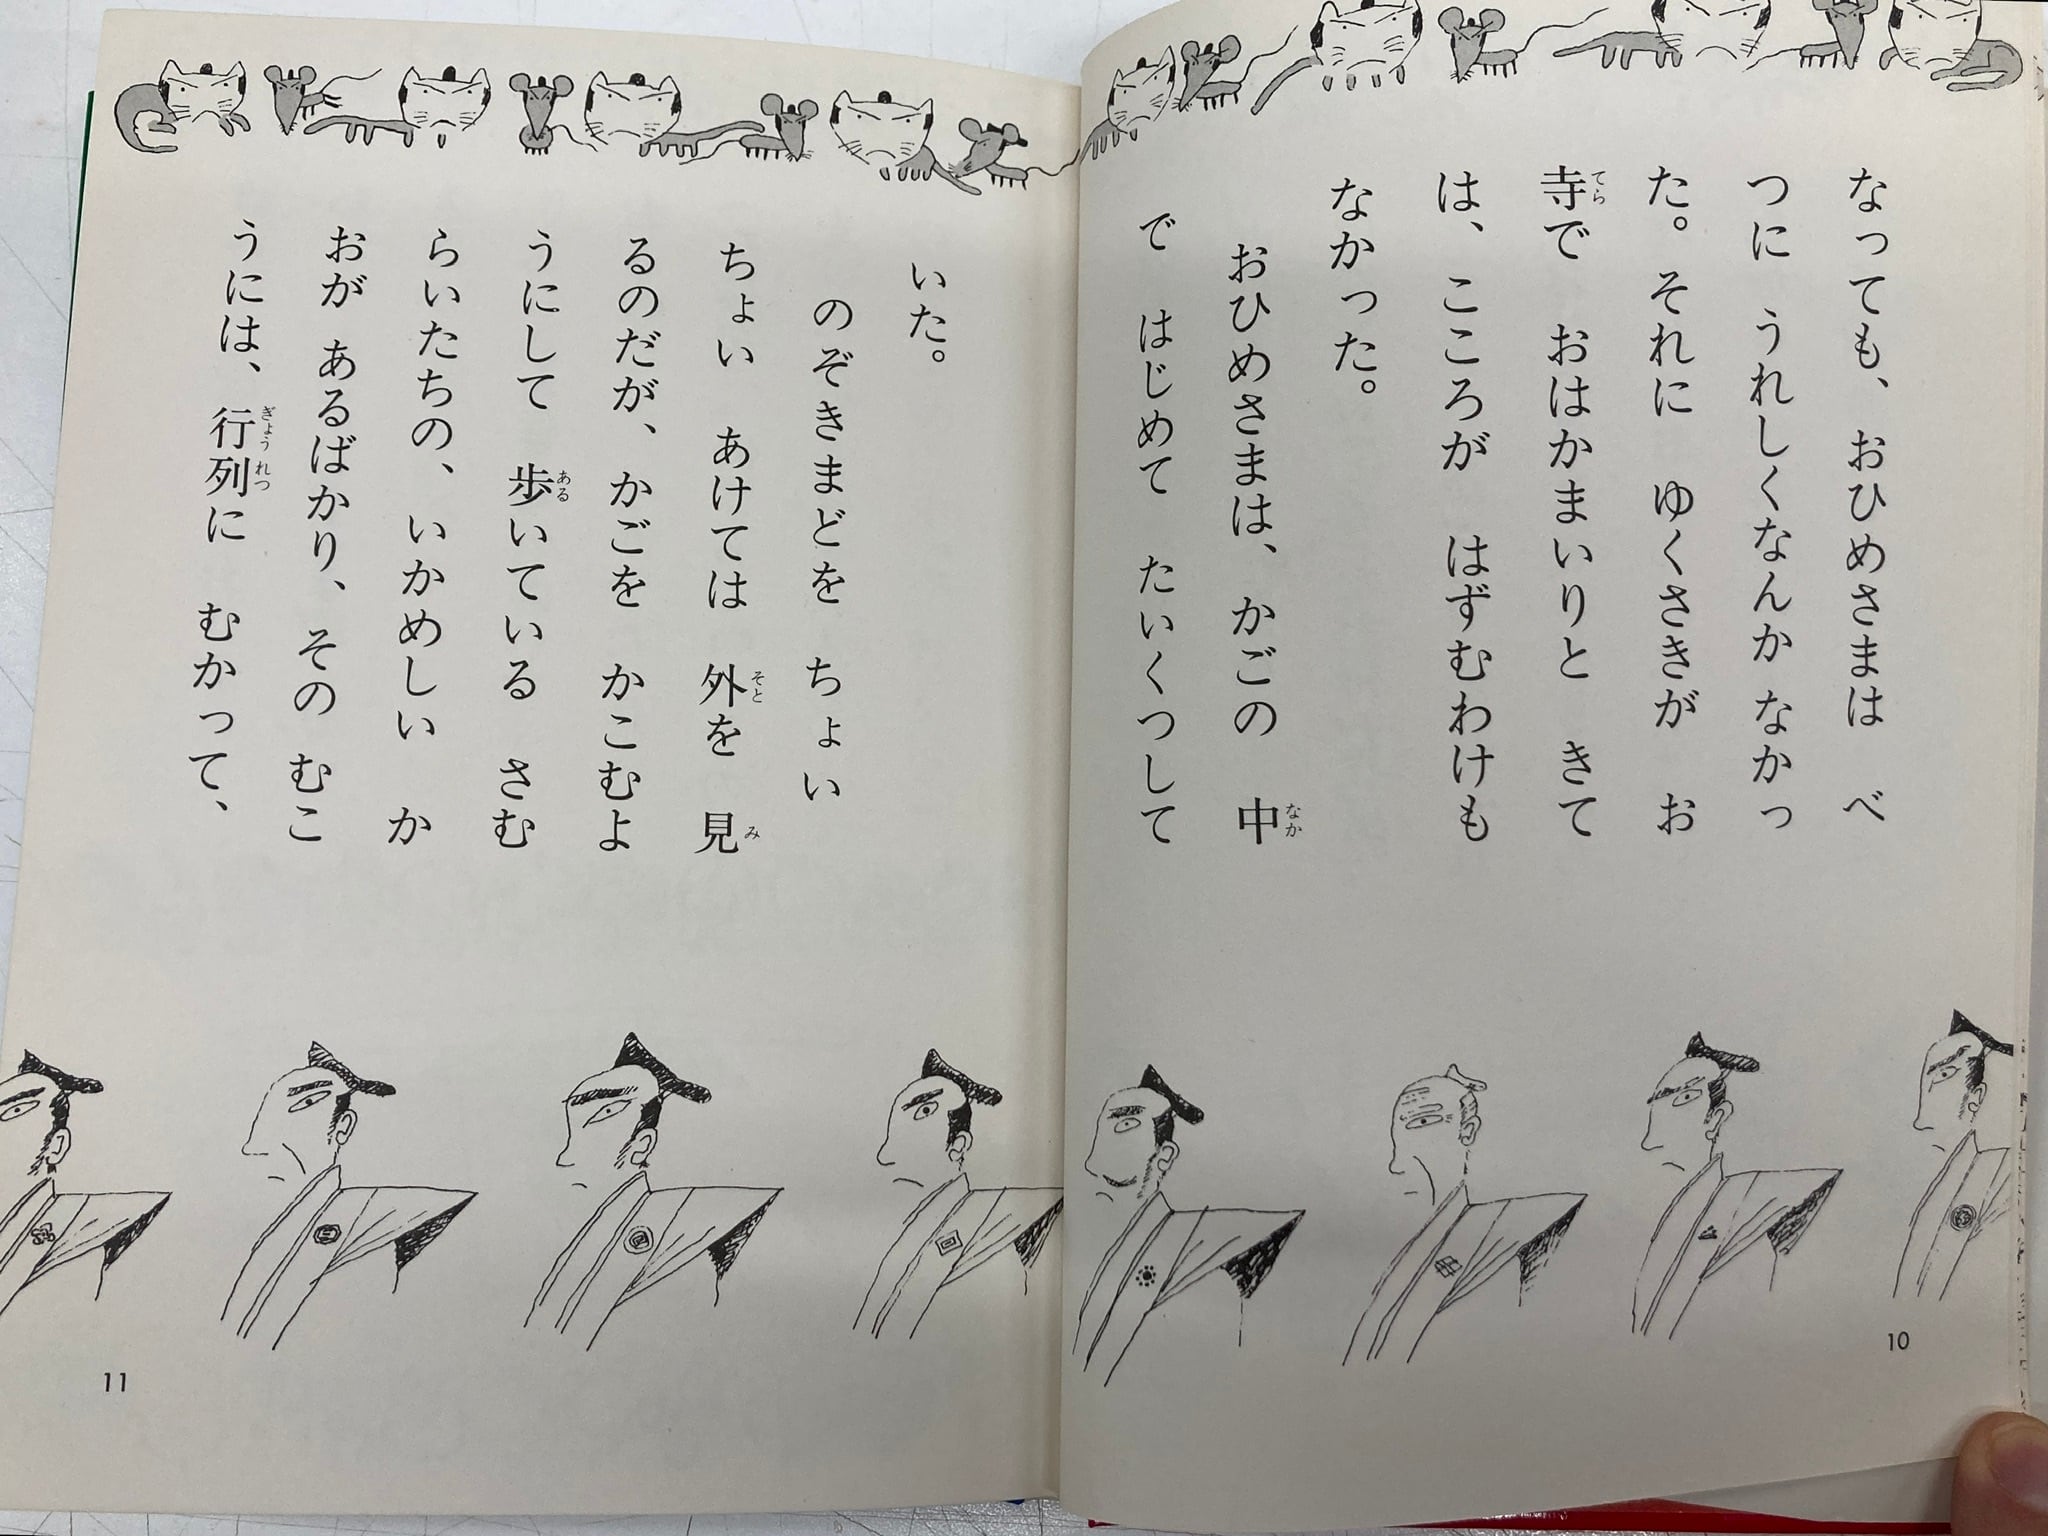 なっても、おひめさまは べ
つに うれしくなんか なかっ
た。それに ゆくさきが お
寺で おはかまいりと きて
は、こころが はずむわけも
なかった。
おひめさまは、かごの 中
で はじめて たいくつして
10
いた。
のぞきまどを ちょい
ちょい あけては 外を 見
るのだが、かごを かこむよ
うにして 歩いている さむ
らいたちの、いかめしい か
おが あるばかり、その むこ
うには、行列に むかって、
11